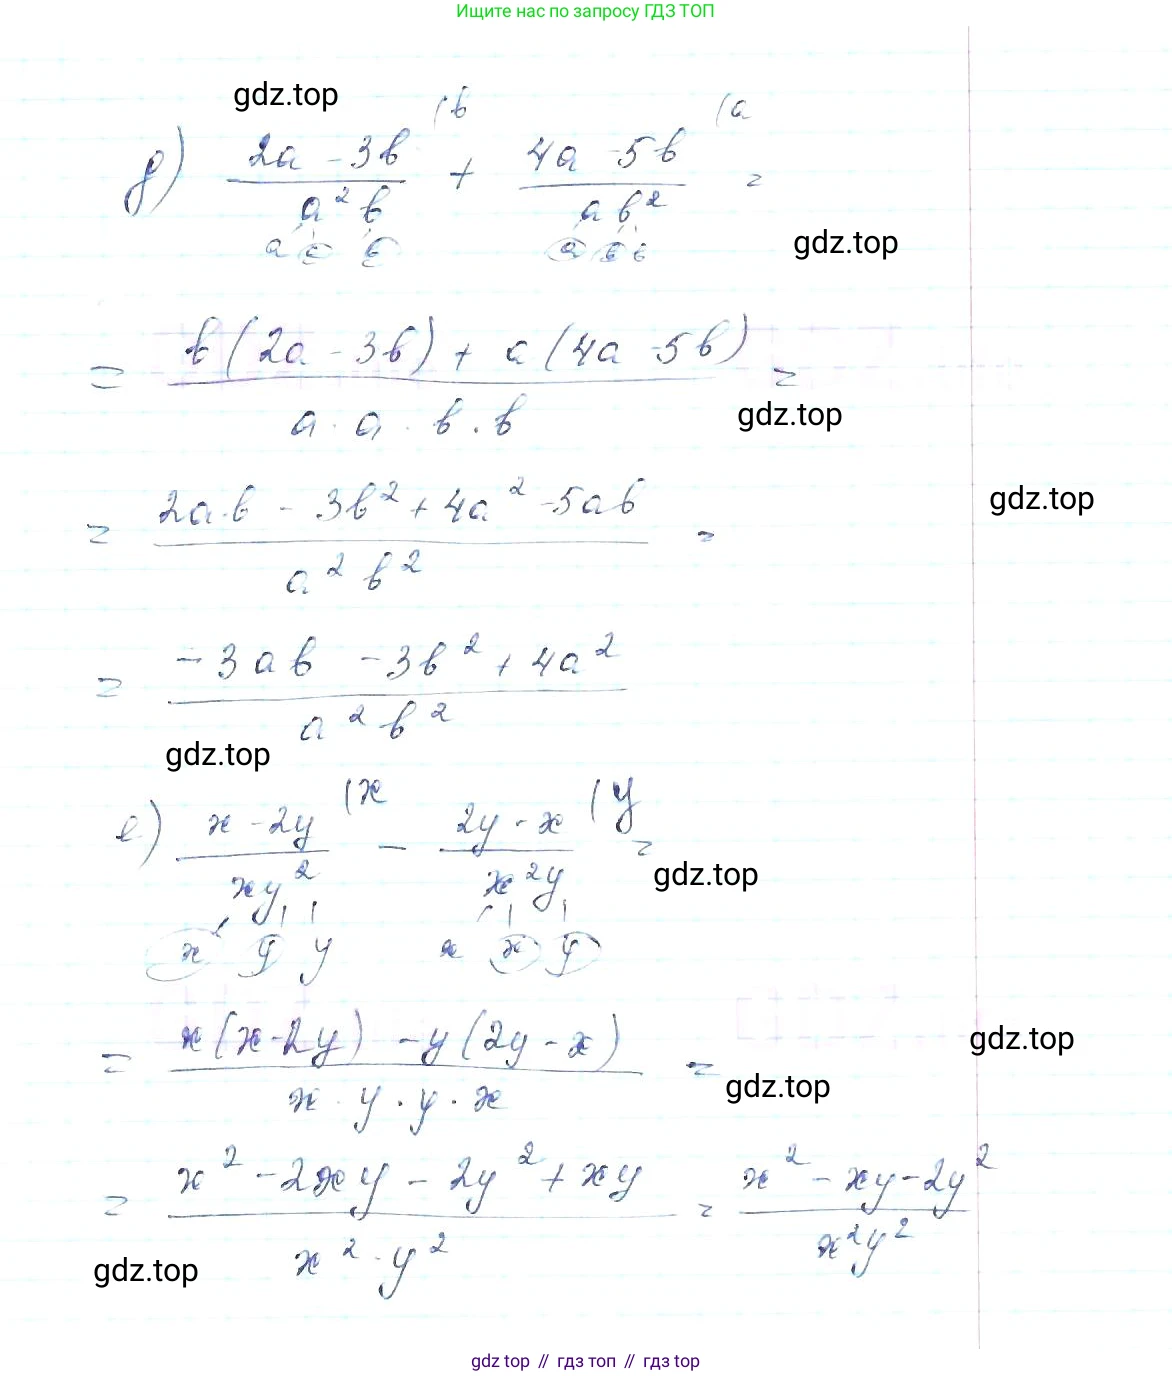 Ищите нас по запросу ГДЗ ТОП
gdz.top
д) (2a - 3b)/(a²b) (b + (4a - 5b)/(ab²) (a =
a a b a b b
gdz.top
= (b(2a - 3b) + a(4a - 5b))/(a · a · b · b) =
gdz.top
= (2a·b - 3b² + 4a² - 5ab)/(a²b²) =
gdz.top
= (-3ab - 3b² + 4a²)/(a²b²)
gdz.top
е) (x - 2y)/(xy²) (x - (2y - x)/(x²y) (y =
gdz.top
x y y x x y
= (x(x - 2y) - y(2y - x))/(x · y · y · x) =
gdz.top
gdz.top
= (x² - 2xy - 2y² + xy)/(x² · y²) = (x² - xy - 2y²)/(x²y²)
gdz.top
gdz top // гдз топ // гдз top